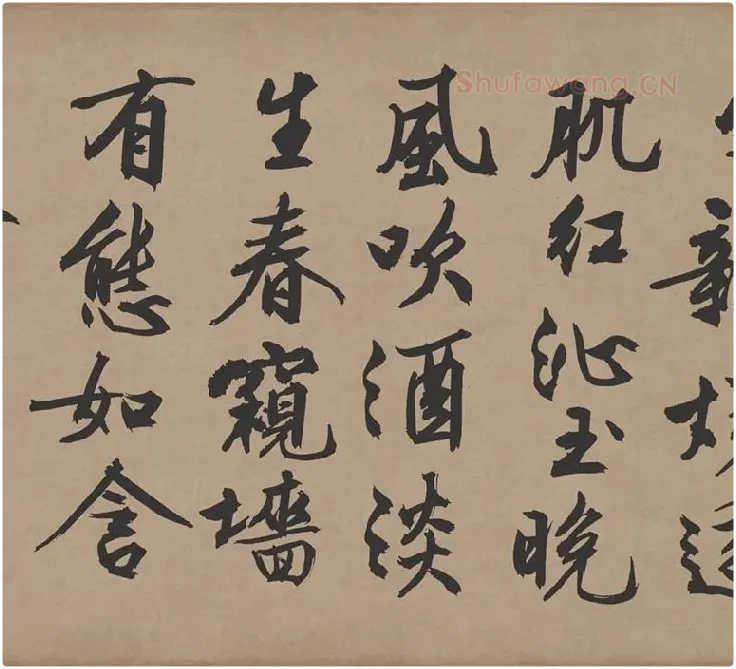 Shufawang.CN
新
肌紅沁玉晚
風吹酒淡
生春窺墻
有態如含